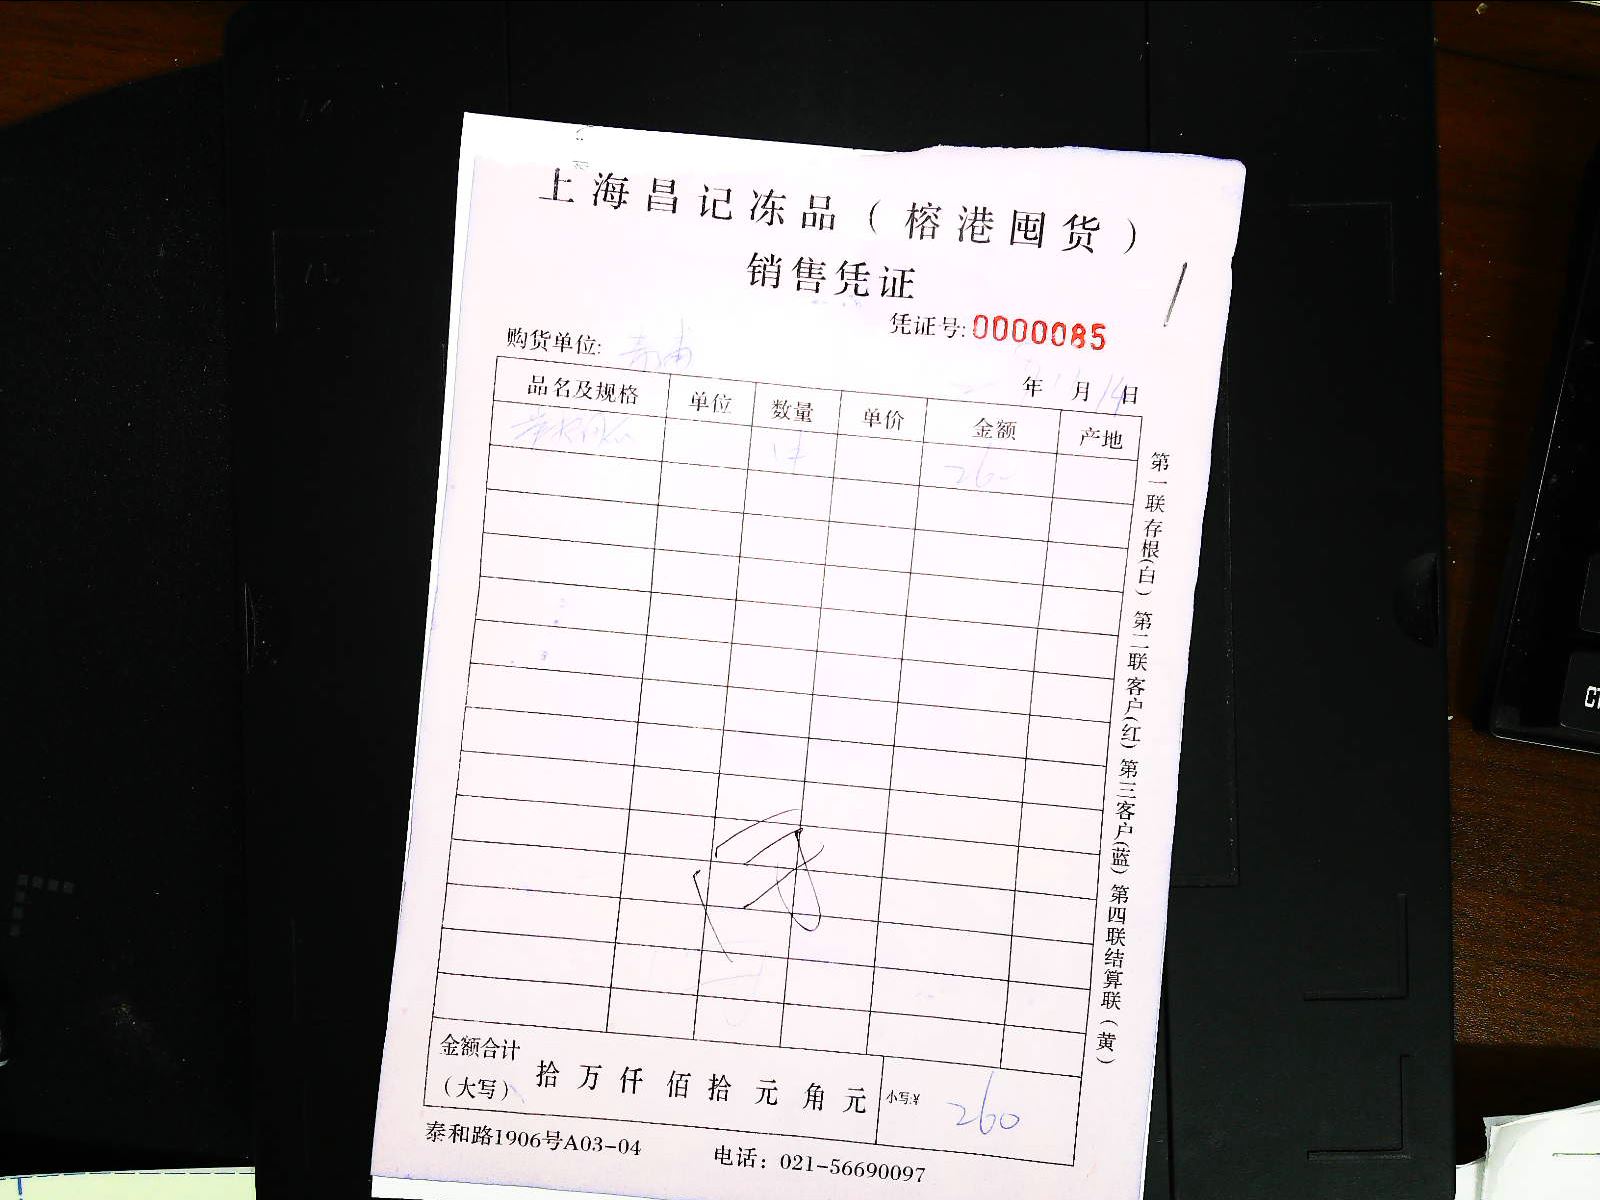 上海昌记冻品（榕港囤货）
销售凭证
凭证号:0000085
购货单位: 青浦
年 月 14 日
品名及规格 单位 数量 单价 金额 产地
1件 260
第一联存根(白) 第二联客户(红) 第三客户(蓝) 第四联结算联(黄)
金额合计
(大写) 拾 万 仟 佰 拾 元 角 元 小写:¥ 260
泰和路1906号A03-04 电话：021-56690097